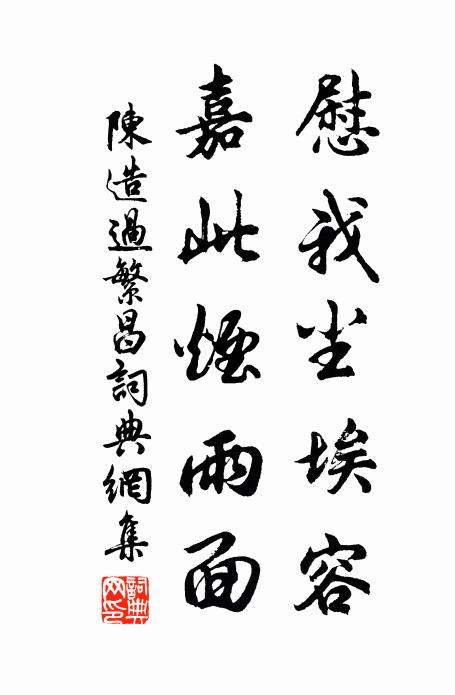 慰我尘埃容
嘉此煙雨面
陳造過繁昌詞典網集
詞典网印